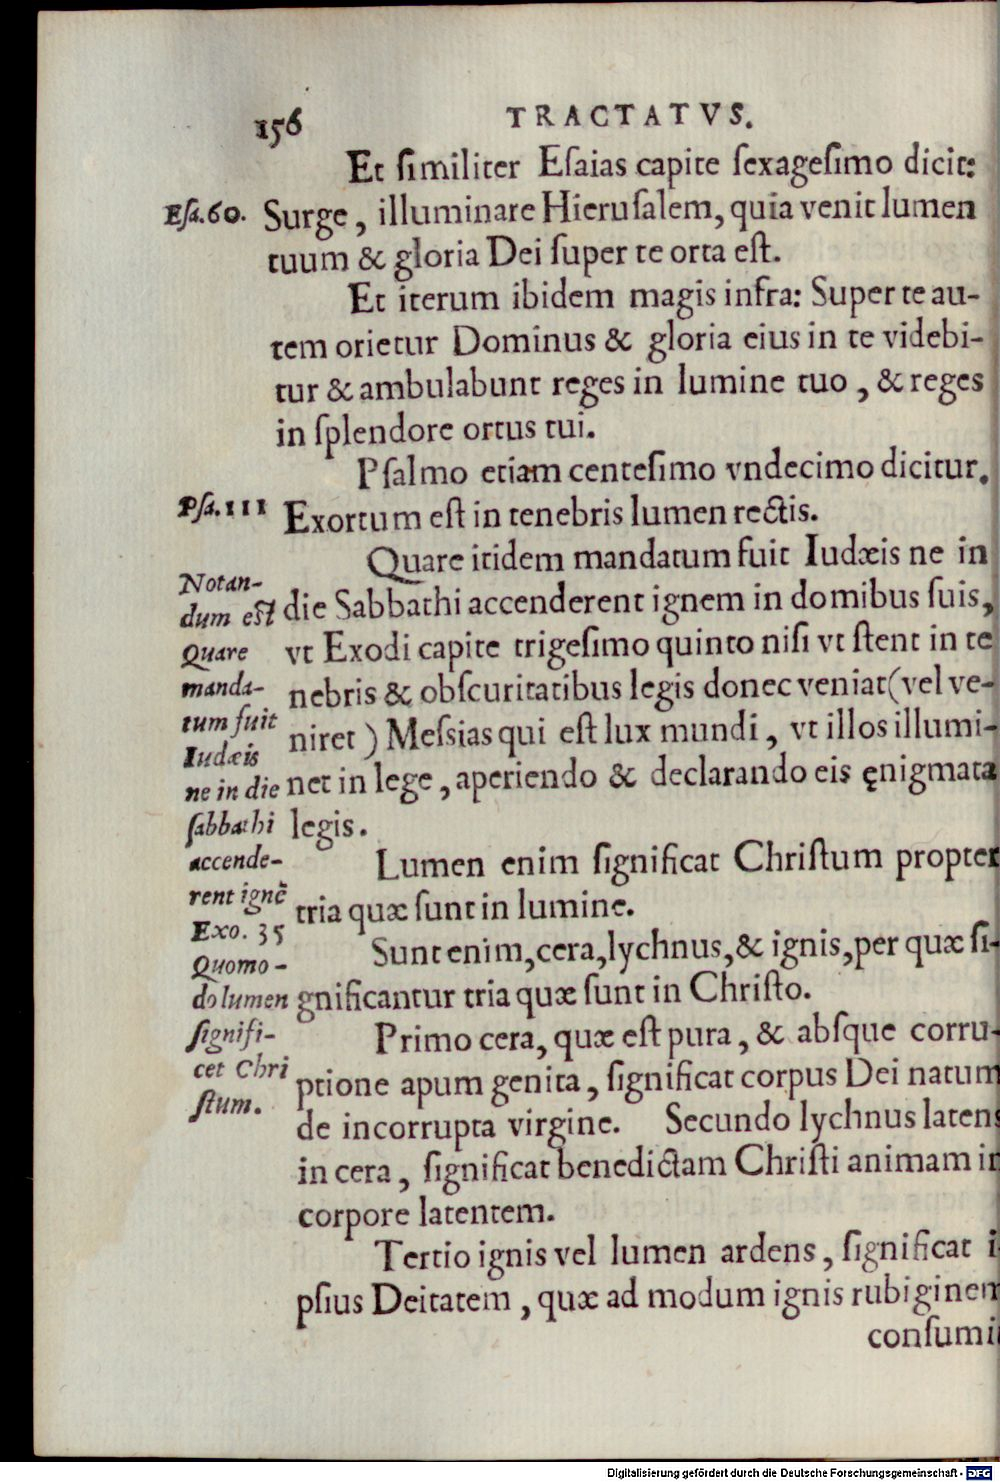 156
TRACTATVS.
Et ſimiliter Eſaias capite ſexageſimo dicit:
Eſa.60.
Surge, illuminare Hieruſalem, quia venit lumen
tuum & gloria Dei ſuper te orta eſt.
Et iterum ibidem magis infra: Super te au-
tem orietur Dominus & gloria eius in te videbi-
tur & ambulabunt reges in lumine tuo, & reges
in ſplendore ortus tui.
Pſalmo etiam centeſimo vndecimo dicitur.
Pſa.111
Exortum eſt in tenebris lumen rectis.
Quare itidem mandatum fuit Iudæis ne in
die Sabbathi accenderent ignem in domibus ſuis,
vt Exodi capite trigeſimo quinto niſi vt ſtent in te
nebris & obſcuritatibus legis donec veniat (vel ve-
niret) Meſsias qui eſt lux mundi, vt illos illumi-
net in lege, aperiendo & declarando eis ęnigmata
legis.
Notan-
dum eſt
Quare
manda-
tum fuit
Iudæis
ne in die
ſabbathi
accende-
rent ignẽ
Exo. 35
Quomo-
do lumen
ſignifi-
cet Chri
ſtum.
Lumen enim ſignificat Chriſtum propter
tria quæ ſunt in lumine.
Sunt enim, cera, lychnus, & ignis, per quæ ſi-
gnificantur tria quæ ſunt in Chriſto.
Primo cera, quæ eſt pura, & abſque corru-
ptione apum genita, ſignificat corpus Dei natum
de incorrupta virgine. Secundo lychnus latens
in cera, ſignificat benedictam Chriſti animam in
corpore latentem.
Tertio ignis vel lumen ardens, ſignificat i-
pſius Deitatem, quæ ad modum ignis rubiginem
conſumit
Digitalisierung gefördert durch die Deutsche Forschungsgemeinschaft - DFG